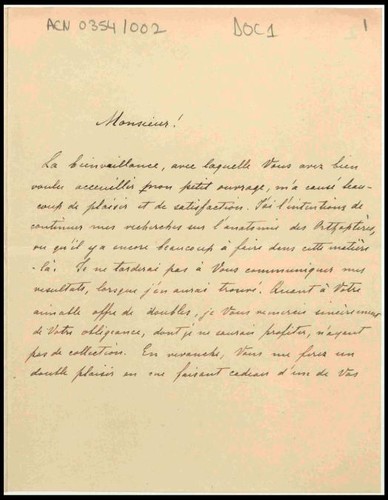 ACN 0354/002 DOC1 1
Monsieur!
La bienveillance, avec laquelle Vous avez bien
voulu accueillir mon petit ouvrage, m'a causé beau-
coup de plaisir et de satisfaction. J'ai l'intention de
continuer mes recherches sur l'anatomie des Orthoptères,
vu qu'il y a encore beaucoup à faire dans cette matière
-là. Je ne tarderai pas à Vous communiquer mes
resultats, lorsque j'en aurai trouvé. Quant à Votre
aimable offre de doubles, je Vous remercie sincèrement
de Votre obligeance, dont je ne saurais profiter, n'ayant
pas de collection. En revanche, Vous me ferez un
double plaisir en me faisant cadeau d'une de Vos